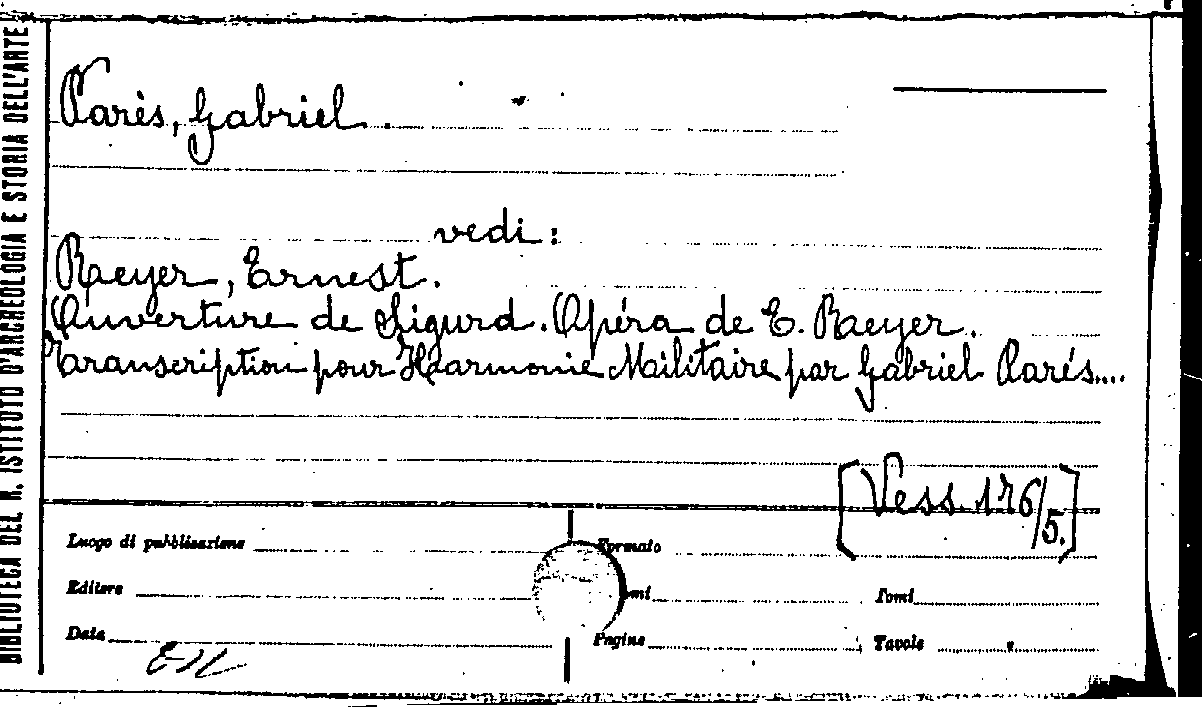 BIBLIOTECA DEL R. ISTITUTO D'ARCHEOLOGIA E STORIA DELL'ARTE
Parès, Gabriel.
vedi:
Reyer, Ernest.
Ouverture de Sigurd. Opéra de E. Reyer.
Transcription pour Harmonie Militaire par Gabriel Parés....
[Vess. 176/5.]
Luogo di pubblicazione
Formato
Editore
Tomi
Data
Pagine
Tavole